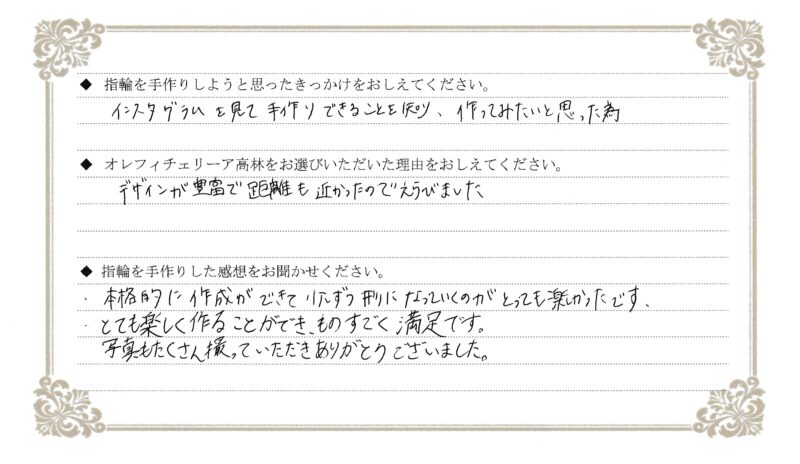 ◆ 指輪を手作りしようと思ったきっかけをおしえてください。
インスタグラムを見て手作りできることを知り、作ってみたいと思った為
◆ オレフィチェリーア高林をお選びいただいた理由をおしえてください。
デザインが豊富で距離も近かったのでえらびました
◆ 指輪を手作りした感想をお聞かせください。
・本格的に作成ができて少しずつ形になっていくのがとっても楽しかったです、
・とても楽しく作ることができ、ものすごく満足です。
写真もたくさん撮っていただきありがとうございました。